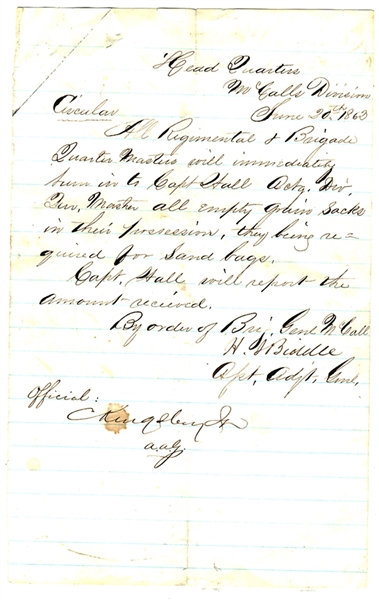 Head Quarters
McCalls Division
Circular June 20th 1862
All Regimental & Brigade
Quarter Masters will immediately
turn in to Capt Hall Actg. Div.
Qur. Master all empty grain Sacks
in their possession, they being re=
quired for Sand bags.
Capt. Hall will report the
amount recieved.
By order of Brig. Genl McCall
H. J. Biddle
Asst, Adjt, Genl,
Official:
C Kingsbury Jr
a.a.g.